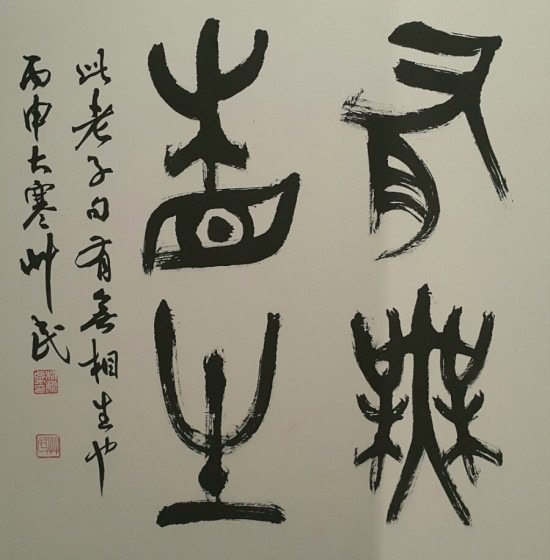 有無
相生
此老子句有無相生也
丙申大寒艸民